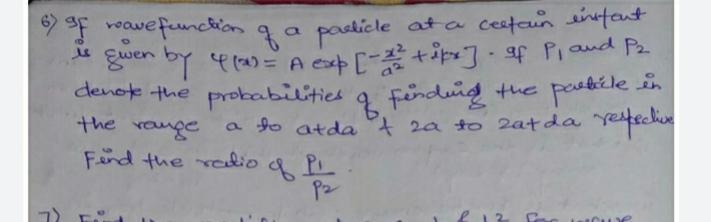 6) If wavefunction of a particle at a certain instant
is given by φ(x) = A exp [-x²/a² + ikx]. If P₁ and P₂
denote the probabilities of finding the particle in
the range a to a+da & 2a to 2a+da respective
Find the ratio of P₁/P₂.
7)